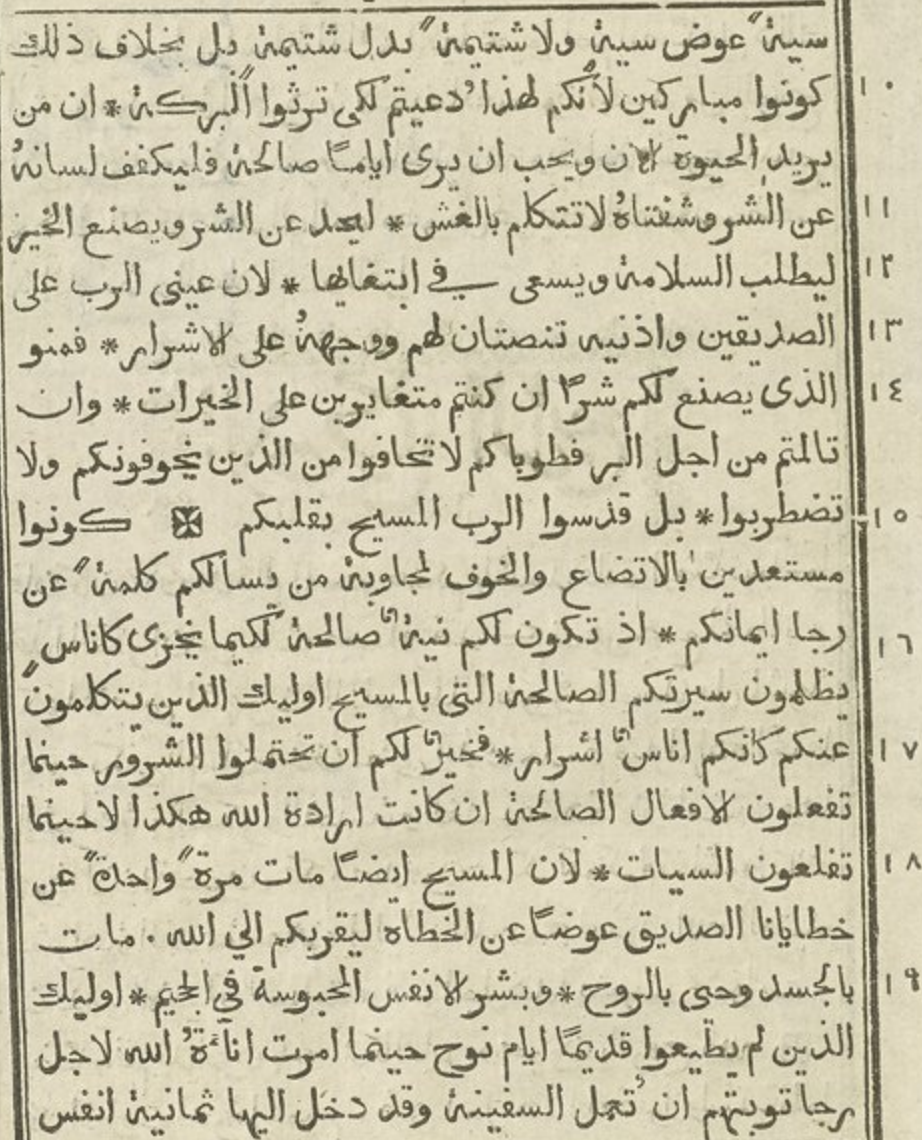 سيةً عوض سية ولا شتيمةً بدل شتيمة بل بخلاف ذلك
١٠ كونوا مباركين لأنكم لهذا دُعيتم لكى ترثوا البركة * ان من
يريد الحيوة الان ويحب ان يرى ايامًا صالحة فليكفف لسانهُ
١١ عن الشر وشفتاهُ لا تتكلم بالغش * ليحد عن الشر ويصنع الخير
١٢ ليطلب السلامة ويسعى في ابتغايها * لان عيني الرب على
١٣ الصديقين واذنيه تنصتان لهم ووجههُ على الاشرار * فمنو
١٤ الذى يصنع لكم شرًا ان كنتم متغايرين على الخيرات * وان
تالمتم من اجل البر فطوباكم لا تخافوا من الذين يخوفونكم ولا
١٥ تضطربوا * بل قدسوا الرب المسيح بقلبكم ✠ كونوا
مستعدين بالاتضاع والخوف لمجاوبة من يسالكم كلمةً عن
١٦ رجا ايمانكم * اذ تكون لكم نيةٌ صالحة لكيما يخزى كاناسٍ
يظلمون سيرتكم الصالحة التى بالمسيح اوليك الذين يتكلمون
١٧ عنكم كانكم اناسٌ اشرار * فخيرٌ لكم ان تحتملوا الشرور حينما
تفعلون الافعال الصالحة ان كانت ارادة الله هكذا لا حينما
١٨ تفلعون السيات * لان المسيح ايضًا مات مرةً واحدةً عن
خطايانا الصديق عوضًا عن الخطاة ليقربكم الي الله . مات
١٩ بالجسد وحيى بالروح * وبشر الانفس المحبوسة في الجحيم * اوليك
الذين لم يطيعوا قديمًا ايام نوح حينما امرت اناءةُ الله لاجل
رجا توبتهم ان تُعمل السفينة وقد دخل اليها ثمانية انفس